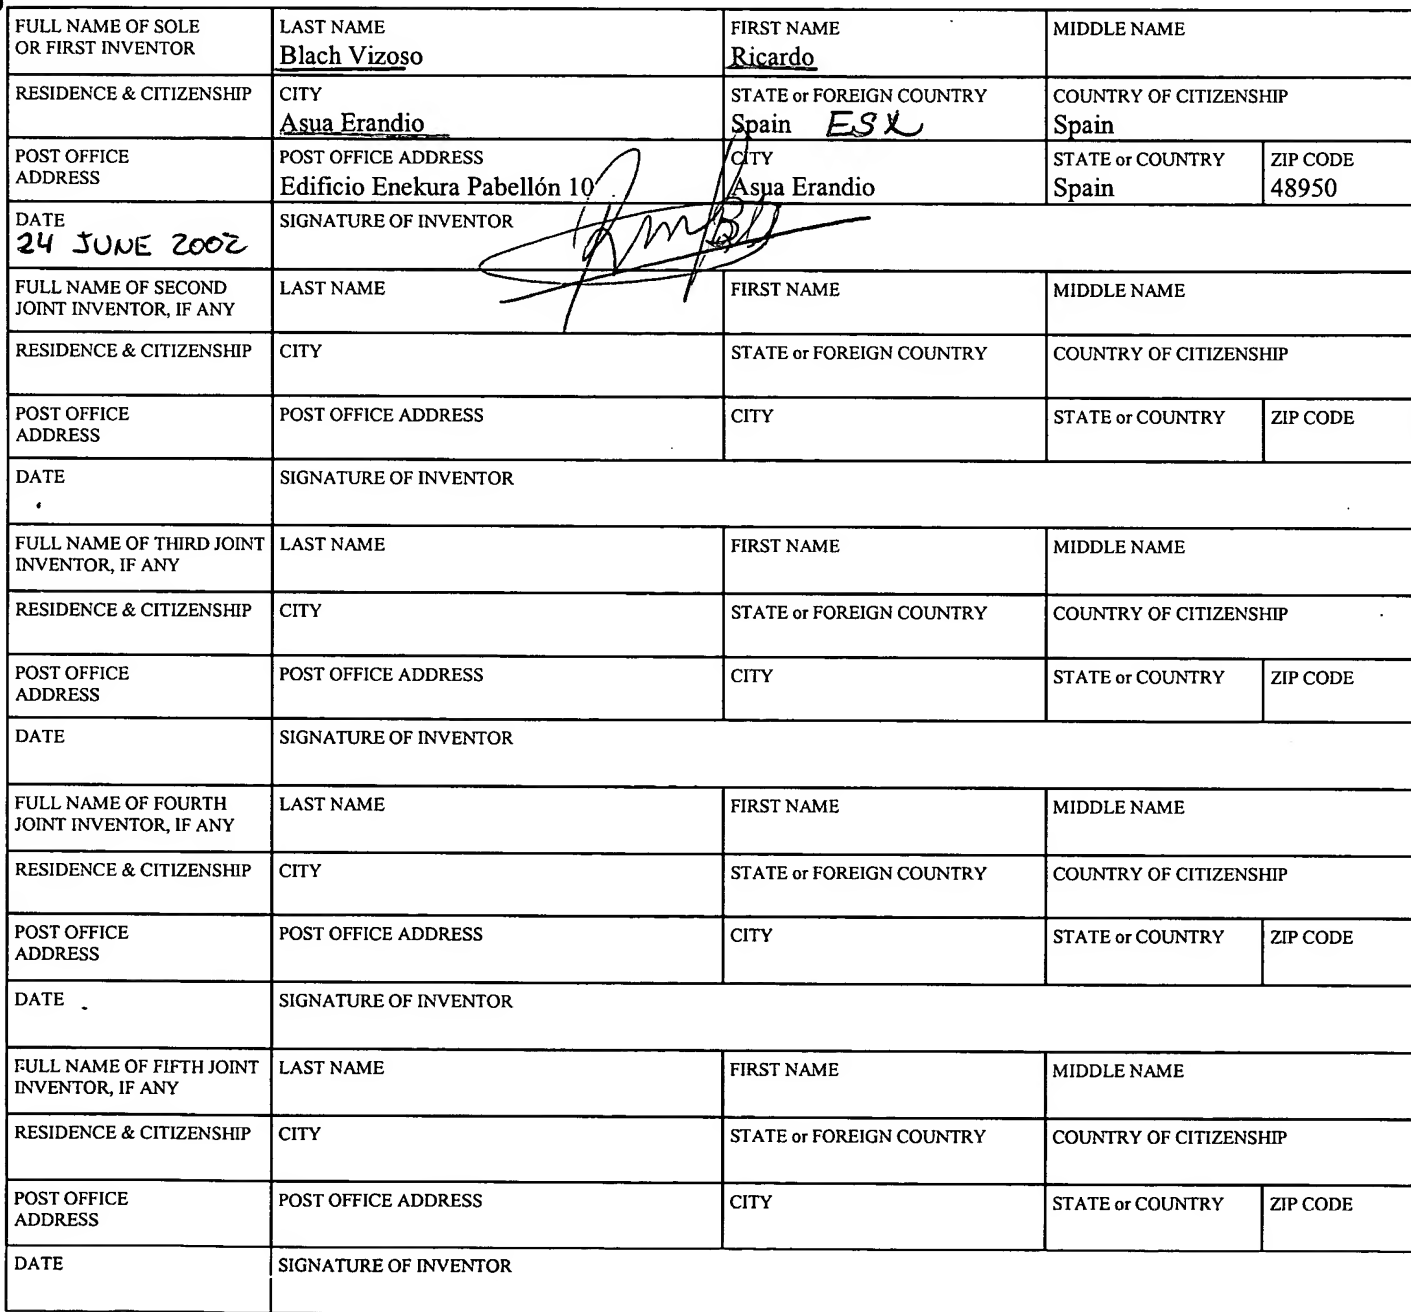 FULL NAME OF SOLE OR FIRST INVENTOR LAST NAME FIRST NAME MIDDLE NAME
Blach Vizoso Ricardo
RESIDENCE & CITIZENSHIP CITY STATE or FOREIGN COUNTRY COUNTRY OF CITIZENSHIP
Asua Erandio Spain ESX Spain
POST OFFICE ADDRESS POST OFFICE ADDRESS CITY STATE or COUNTRY ZIP CODE
Edificio Enekura Pabellón 10 Asua Erandio Spain 48950
DATE SIGNATURE OF INVENTOR
24 JUNE 2002
FULL NAME OF SECOND JOINT INVENTOR, IF ANY LAST NAME FIRST NAME MIDDLE NAME
RESIDENCE & CITIZENSHIP CITY STATE or FOREIGN COUNTRY COUNTRY OF CITIZENSHIP
POST OFFICE ADDRESS POST OFFICE ADDRESS CITY STATE or COUNTRY ZIP CODE
DATE SIGNATURE OF INVENTOR
FULL NAME OF THIRD JOINT INVENTOR, IF ANY LAST NAME FIRST NAME MIDDLE NAME
RESIDENCE & CITIZENSHIP CITY STATE or FOREIGN COUNTRY COUNTRY OF CITIZENSHIP
POST OFFICE ADDRESS POST OFFICE ADDRESS CITY STATE or COUNTRY ZIP CODE
DATE SIGNATURE OF INVENTOR
FULL NAME OF FOURTH JOINT INVENTOR, IF ANY LAST NAME FIRST NAME MIDDLE NAME
RESIDENCE & CITIZENSHIP CITY STATE or FOREIGN COUNTRY COUNTRY OF CITIZENSHIP
POST OFFICE ADDRESS POST OFFICE ADDRESS CITY STATE or COUNTRY ZIP CODE
DATE SIGNATURE OF INVENTOR
FULL NAME OF FIFTH JOINT INVENTOR, IF ANY LAST NAME FIRST NAME MIDDLE NAME
RESIDENCE & CITIZENSHIP CITY STATE or FOREIGN COUNTRY COUNTRY OF CITIZENSHIP
POST OFFICE ADDRESS POST OFFICE ADDRESS CITY STATE or COUNTRY ZIP CODE
DATE SIGNATURE OF INVENTOR